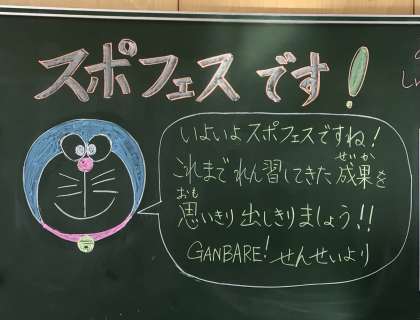 スポフェスです!
いよいよスポフェスですね!
せいか
これまでれん習してきた成果を
おも
思いきり出しきりましょう!!
GANBARE! せんせいより